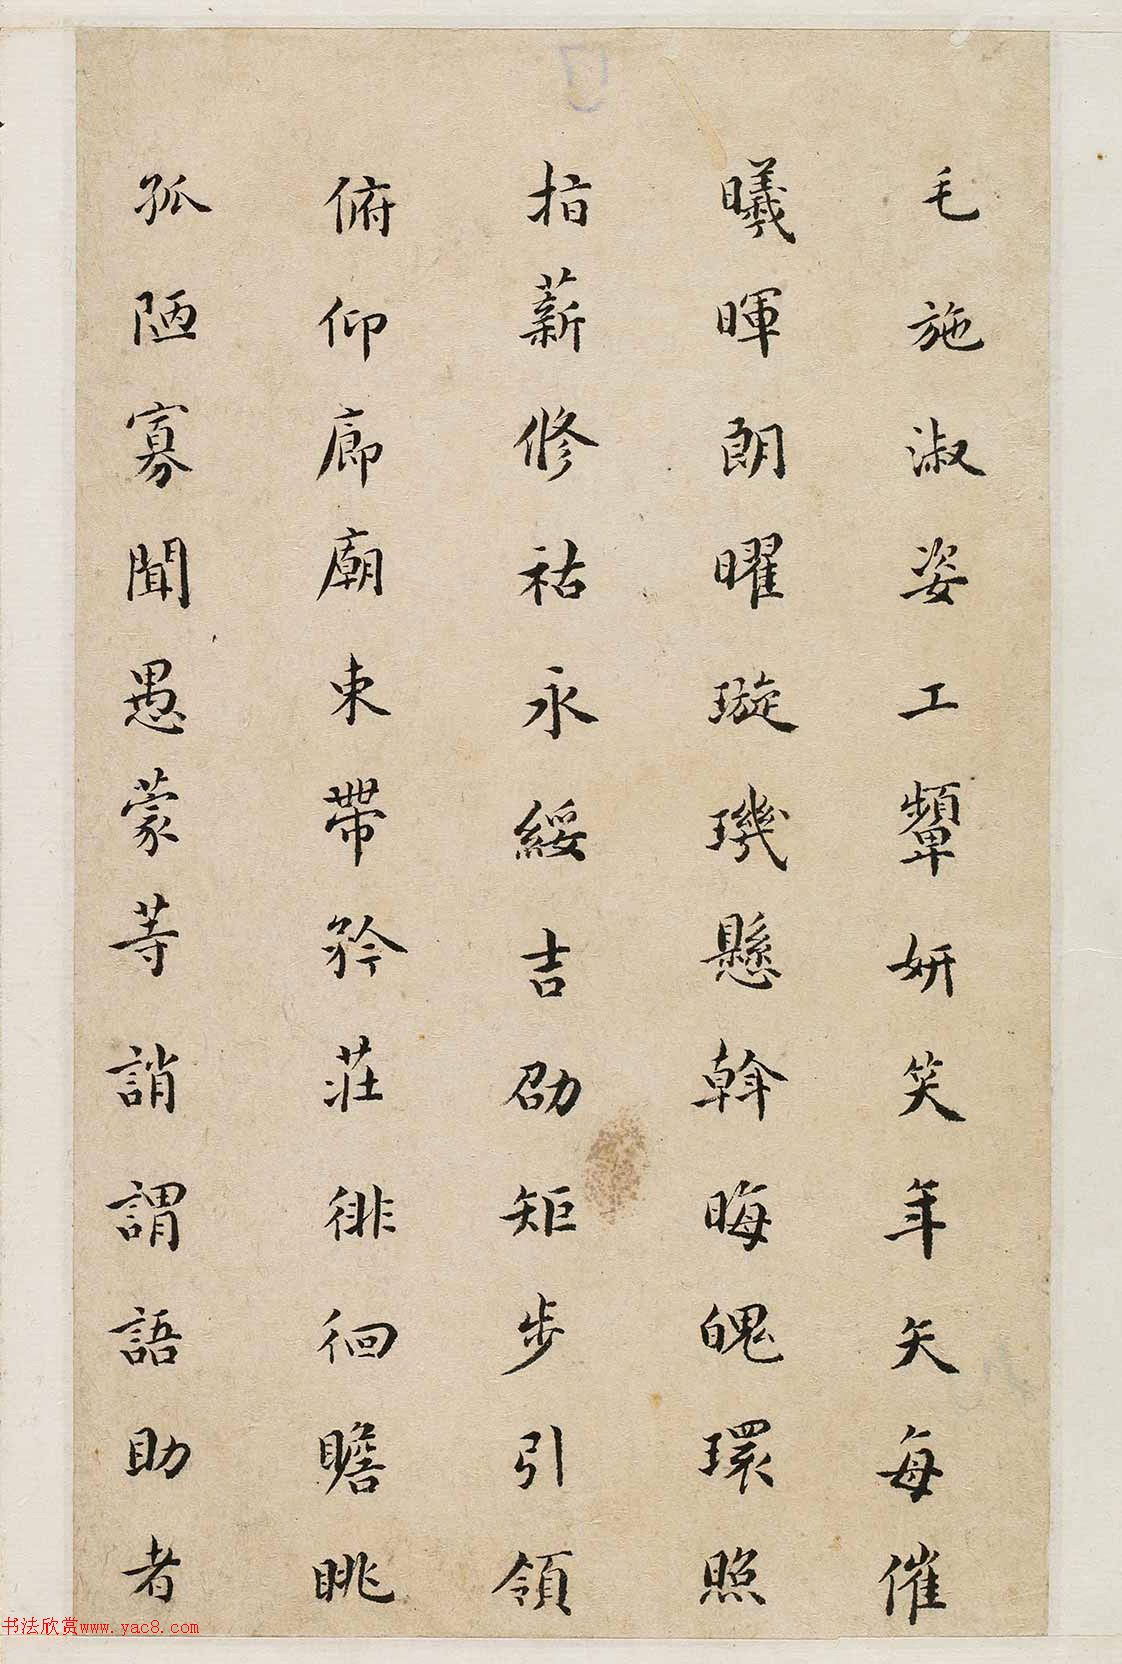 毛施淑姿工顰妍笑年矢每催
曦暉朗曜璇璣懸斡晦魄環照
指薪修祜永綏吉劭矩步引領
俯仰廊廟束帶矜莊徘徊瞻眺
孤陋寡聞愚蒙等誚謂語助者
书法欣赏www.yac8.com